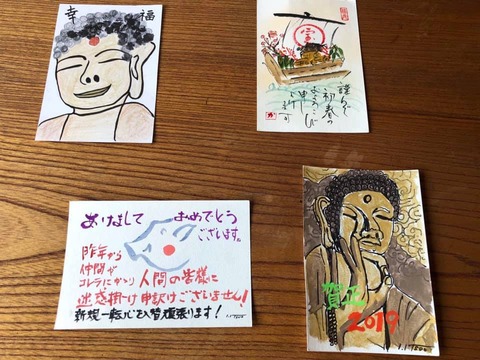 幸 福
宝
謹んで
初春の
よろこび
あけまして おめでとう
ございます。
昨年から
仲間が
コレラにかかり 人間の皆様に
迷惑掛け申訳けございません!
新規一転心を入替頑張ります!
賀正
2019